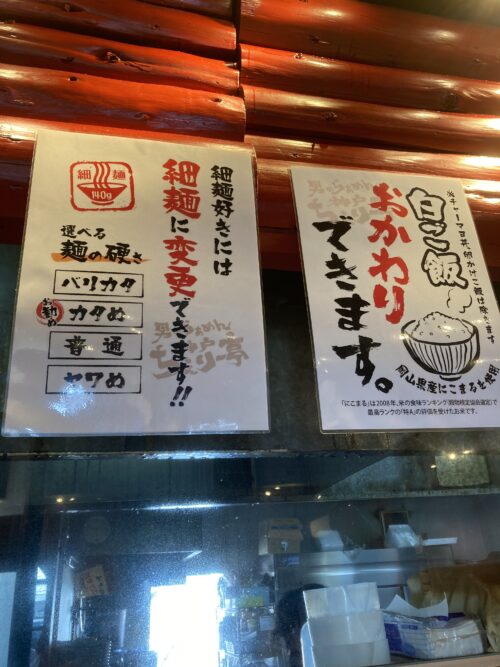 細麺
140g
選べる
麺の硬さ
バリカタ
お勧め
カタめ
普通
ヤワめ
細麺好きには
細麺に変更できます!!
※チャーマヨ丼、卵かけご飯は除きます
白ご飯
おかわり
できます。
岡山県産にこまるを使用
「にこまる」は2008年、米の食味ランキング(穀物検定協会選定)で
最高ランクの「特A」の評価を受けたお米です。